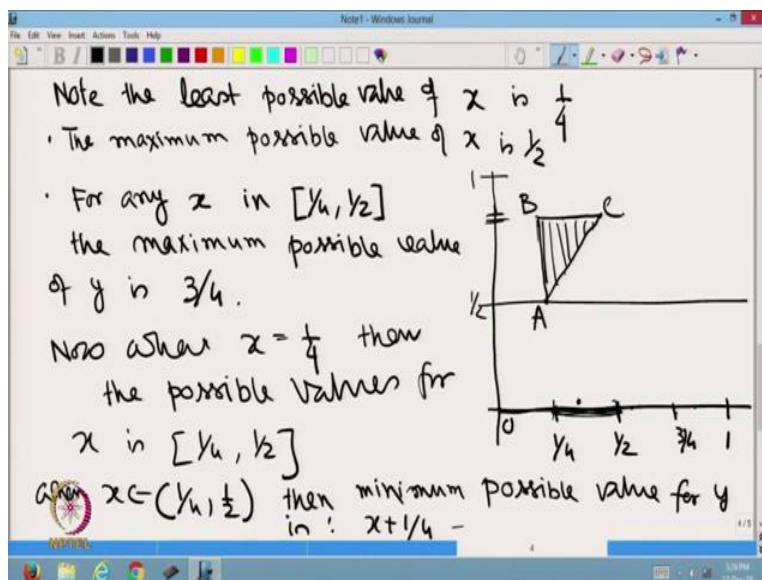 Note1 - Windows Journal
File Edit View Insert Actions Tools Help
B I
Note the least possible value of x is 1/4
· The maximum possible value of x is 1/2
· For any x in [1/4, 1/2]
the maximum possible value
of y is 3/4.
Now when x = 1/4 then
the possible values for
x is [1/4, 1/2]
when x ∈ (1/4, 1/2) then minimum possible value for y
is : x + 1/4 –
1
B C
1/2
A
0 1/4 1/2 3/4 1
NPTEL
4/5
4